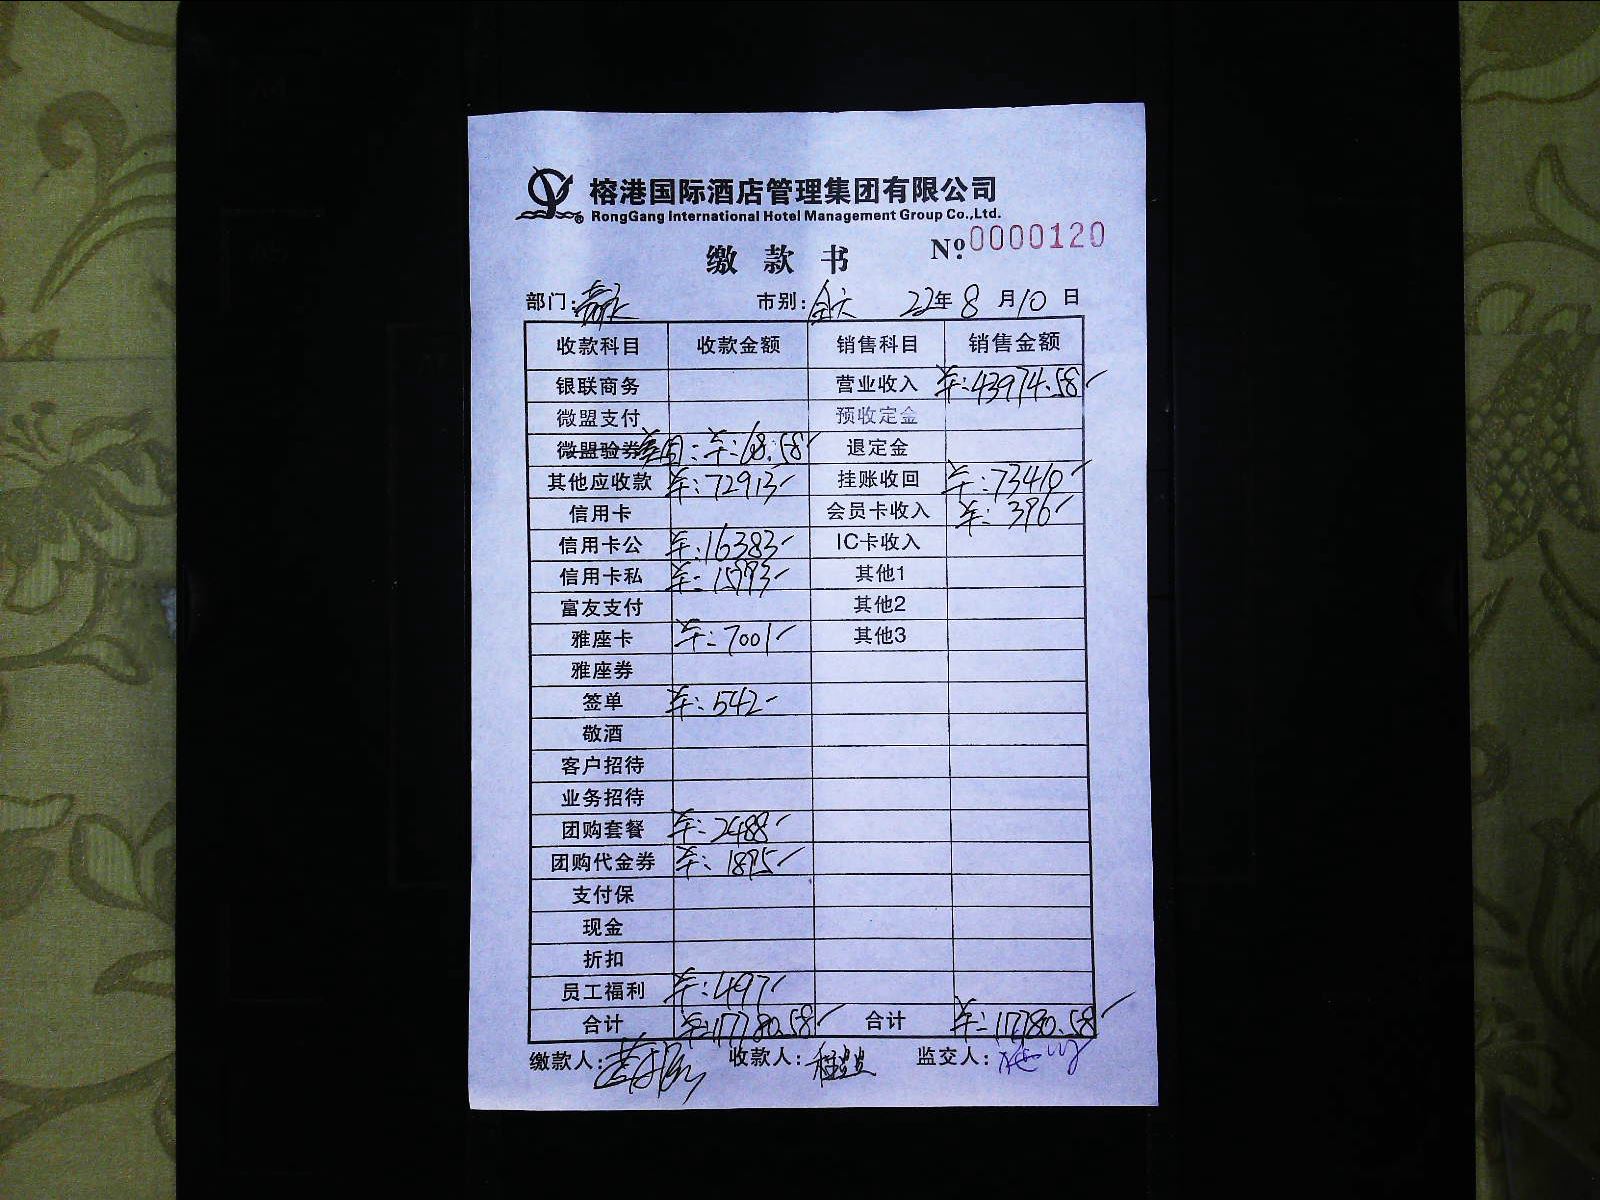 榕港国际酒店管理集团有限公司
RongGang International Hotel Management Group Co.,Ltd.
缴款书 №0000120
部门: 市别:全天 22年8月10日
收款科目 收款金额 销售科目 销售金额
银联商务 营业收入 ¥:43974.58
微盟支付 预收定金
微盟验券 美团:¥:68.58 退定金
其他应收款 ¥:72913 挂账收回 ¥:73410
信用卡 会员卡收入 ¥:396
信用卡公 ¥:16383 IC卡收入
信用卡私 ¥:15993 其他1
富友支付 其他2
雅座卡 ¥:7001 其他3
雅座券
签单 ¥:542
敬酒
客户招待
业务招待
团购套餐 ¥:2488
团购代金券 ¥:1895
支付保
现金
折扣
员工福利 ¥:497
合计 ¥:117780.58 合计 ¥:117780.58
缴款人: 收款人: 监交人: